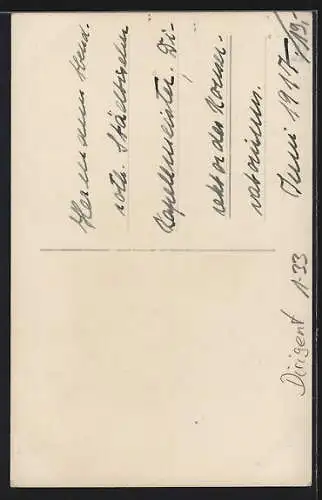 Hermann Abend-
roth. Städtischer
Kapellmeister. Di-
rektor des Konser-
vatoriums.
Juni 1917
19.-
Dirigent 1.33